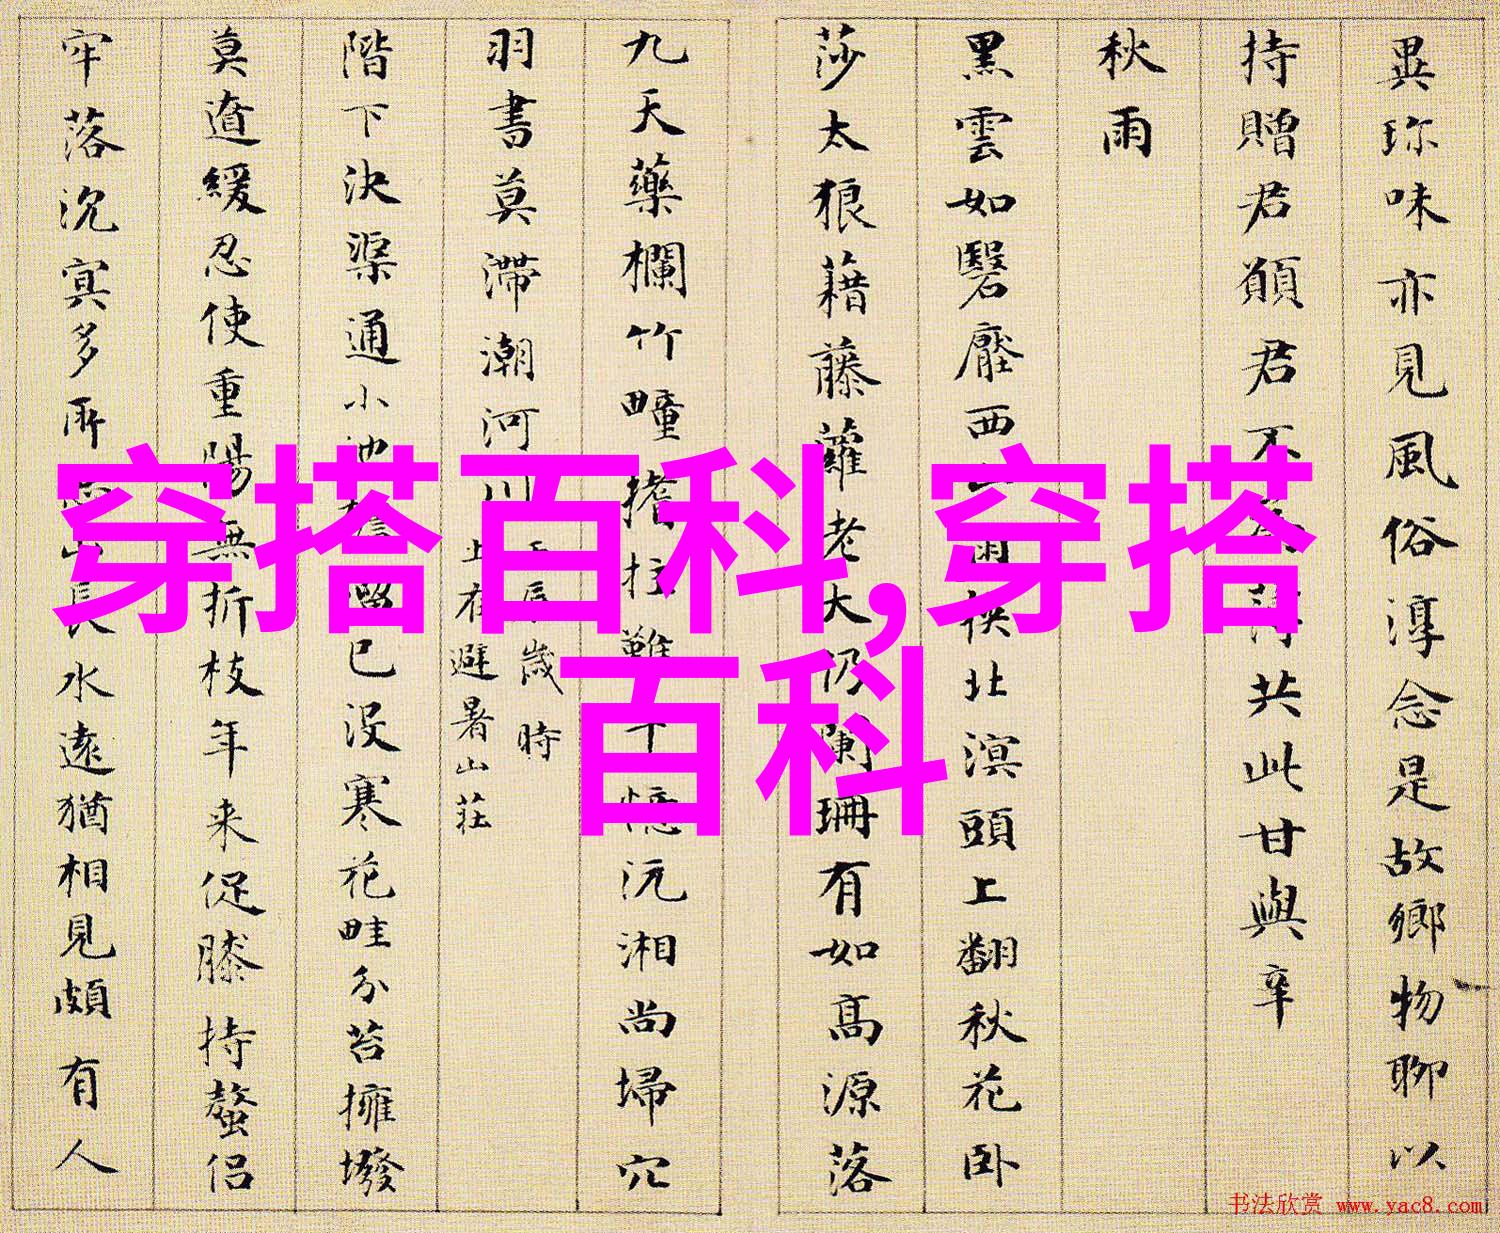 異珎味亦見風俗淳念是故鄉物聊以
持贈君願君不共此甘與辛
秋雨
黑雲如翳壓西北溟頭上翻秋花卧
莎太狼藉藤蘿老大仍闌珊有如高源落
九天藥欄竹疃撐拄難憶沅湘尚埽穴
羽書莫滯潮河川
歲時
上在避暑山莊
階下決渠通小池已没寒花畦分苔擁墢
莫遒緩忍使重陽無折枝年来促膝持螯侶
牢落沉冥多所山長水遠猶相見頗有人
穿搭百科,穿搭
百科
书法欣赏 www.yac8.com